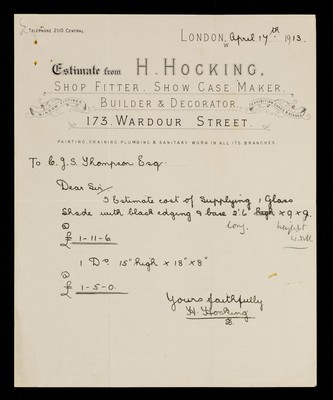 TELEPHONE 2110 CENTRAL.
LONDON, W April 17th 1913.
Estimate from H. HOCKING,
SHOP FITTER, SHOW CASE MAKER,
BUILDER & DECORATOR.
173, WARDOUR STREET.
PAINTING, GRAINING, PLUMBING & SANITARY WORK IN ALL ITS BRANCHES.
To C. J. S. Thompson Esq
Dear Sir
I Estimate cost of Supplying 1 Glass
Shade with black edging & base 2'.6" high x 9 x 9.
long. height
@
£ 1-11-6
1 Do 15" high x 18" x 8"
@
£ 1-5-0.
Yours faithfully
H. Hocking